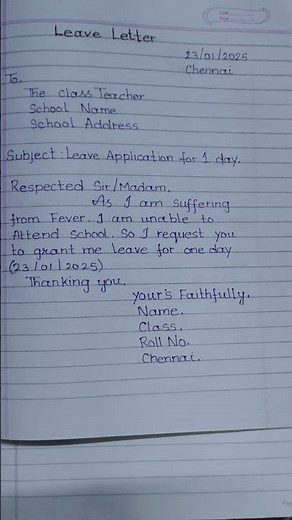 Leave Letter
23/01/2025
Chennai
To,
The Class Teacher
School Name
School Address
Subject: Leave Application for 1 day.
Respected Sir/Madam,
As I am suffering
from Fever. I am unable to
Attend School. So I request you
to grant me leave for one day
(23/01/2025)
Thanking you.
your's Faithfully.
Name.
Class.
Roll No.
Chennai.